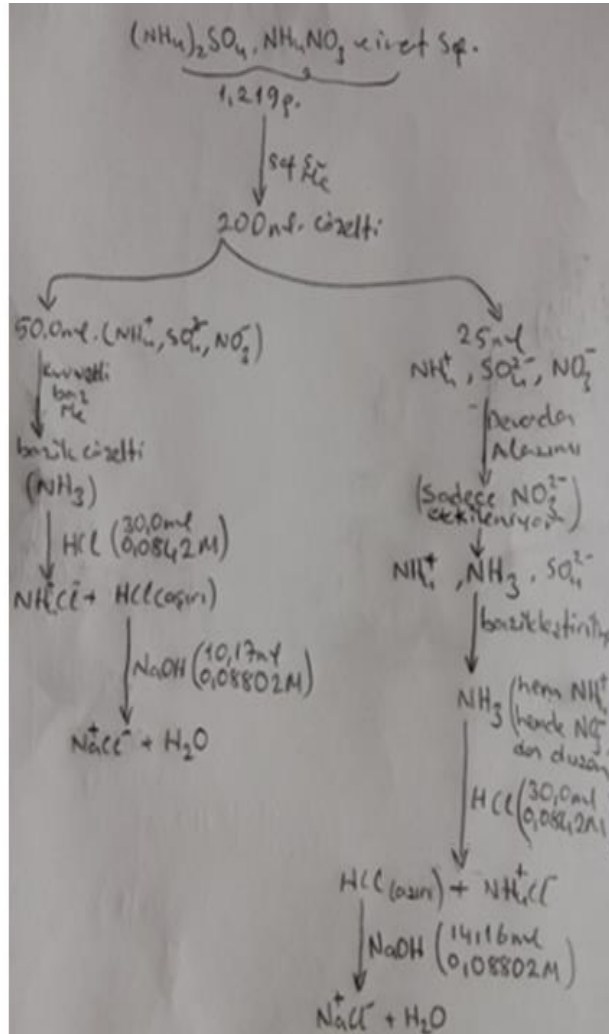 (NH₄)₂SO₄, NH₄NO₃ ve inet saf.
1,219g.
saf
200 ml. çözelti
50,0ml. (NH₄⁺, SO₄²⁻, NO₃⁻)
kuvvetli
baz
bazik çözelti
(NH₃)
HCl (30,0ml
0,0842M)
NH₄⁺Cl⁻ + HCl(aşırı)
NaOH (10,17ml
0,08802M)
Na⁺Cl⁻ + H₂O
25ml
NH₄⁺, SO₄²⁻, NO₃⁻
Devarda
Alaşımı
(Sadece NO₃²⁻
etkileniyor)
NH₄⁺, NH₃, SO₄²⁻
bazikleştirilip
NH₃ (hem NH₄⁺
hemde NO₃⁻
HCl (30,0ml
0,0842M
HCl(aşırı) + NH₄⁺Cl⁻
NaOH (14,16ml
0,08802M)
Na⁺Cl⁻ + H₂O